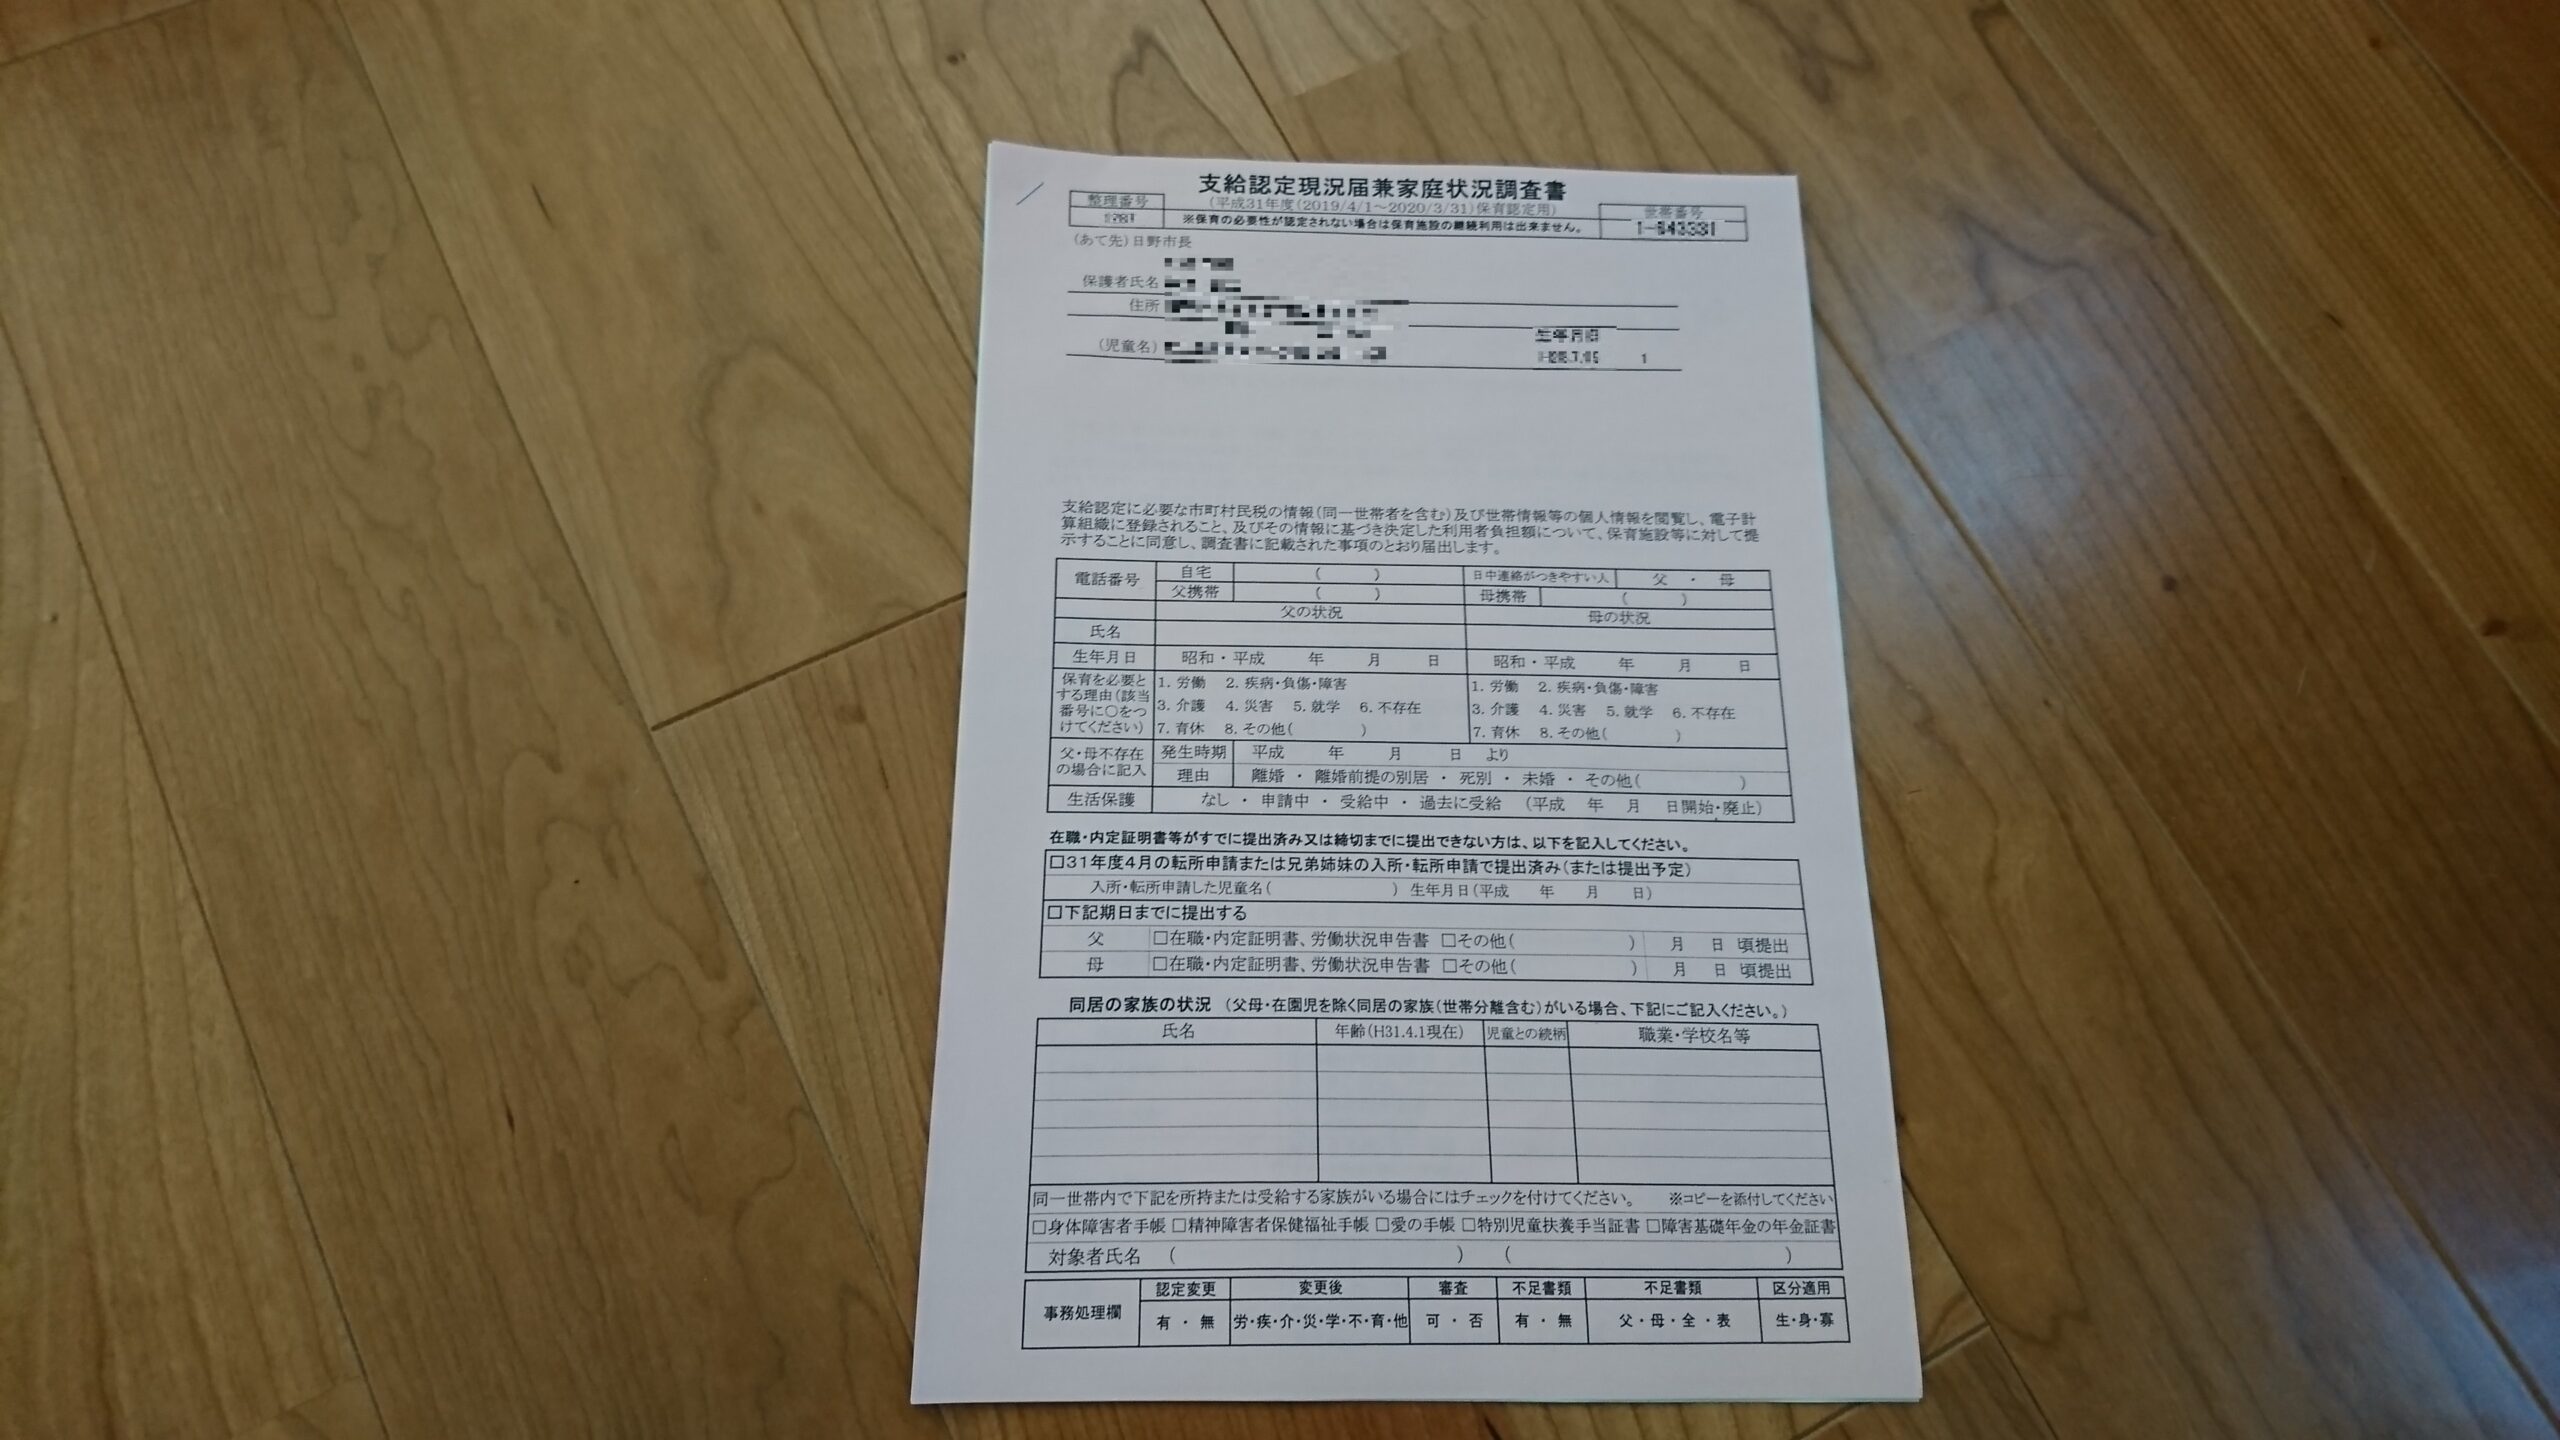 支給認定現況届兼家庭状況調査書
(平成31年度(2019/4/1～2020/3/31)保育認定用)
整理番号
世帯番号
※保育の必要性が認定されない場合は保育施設の継続利用は出来ません。
1-643331
(あて先)日野市長
保護者氏名
住所
生年月日
(児童名)
1
支給認定に必要な市町村民税の情報(同一世帯者を含む)及び世帯情報等の個人情報を閲覧し、電子計
算組織に登録されること、及びその情報に基づき決定した利用者負担額について、保育施設等に対して提
示することに同意し、調査書に記載された事項のとおり届出します。
電話番号 自宅 ( ) 日中連絡がつきやすい人 父 ・ 母
父携帯 ( ) 母携帯 ( )
父の状況 母の状況
氏名
生年月日 昭和・平成 年 月 日 昭和・平成 年 月 日
保育を必要と
する理由(該当
番号に○をつ
けてください)
1. 労働 2. 疾病・負傷・障害
3. 介護 4. 災害 5. 就学 6. 不存在
7. 育休 8. その他( )
1. 労働 2. 疾病・負傷・障害
3. 介護 4. 災害 5. 就学 6. 不存在
7. 育休 8. その他( )
父・母不存在
の場合に記入
発生時期 平成 年 月 日 より
理由 離婚 ・ 離婚前提の別居 ・ 死別 ・ 未婚 ・ その他( )
生活保護 なし ・ 申請中 ・ 受給中 ・ 過去に受給 (平成 年 月 日開始・廃止)
在職・内定証明書等がすでに提出済み又は締切までに提出できない方は、以下を記入してください。
□31年度4月の転所申請または兄弟姉妹の入所・転所申請で提出済み(または提出予定)
入所・転所申請した児童名( ) 生年月日(平成 年 月 日)
□下記期日までに提出する
父 □在職・内定証明書、労働状況申告書 □その他( ) 月 日 頃提出
母 □在職・内定証明書、労働状況申告書 □その他( ) 月 日 頃提出
同居の家族の状況 (父母・在園児を除く同居の家族(世帯分離含む)がいる場合、下記にご記入ください。)
氏名 年齢(H31.4.1現在) 児童との続柄 職業・学校名等
同一世帯内で下記を所持または受給する家族がいる場合にはチェックを付けてください。 ※コピーを添付してください
□身体障害者手帳 □精神障害者保健福祉手帳 □愛の手帳 □特別児童扶養手当証書 □障害基礎年金の年金証書
対象者氏名 ( ) ( )
事務処理欄 認定変更 変更後 審査 不足書類 不足書類 区分適用
有 ・ 無 労・疾・介・災・学・不・育・他 可 ・ 否 有 ・ 無 父・母・全・表 生・身・寡